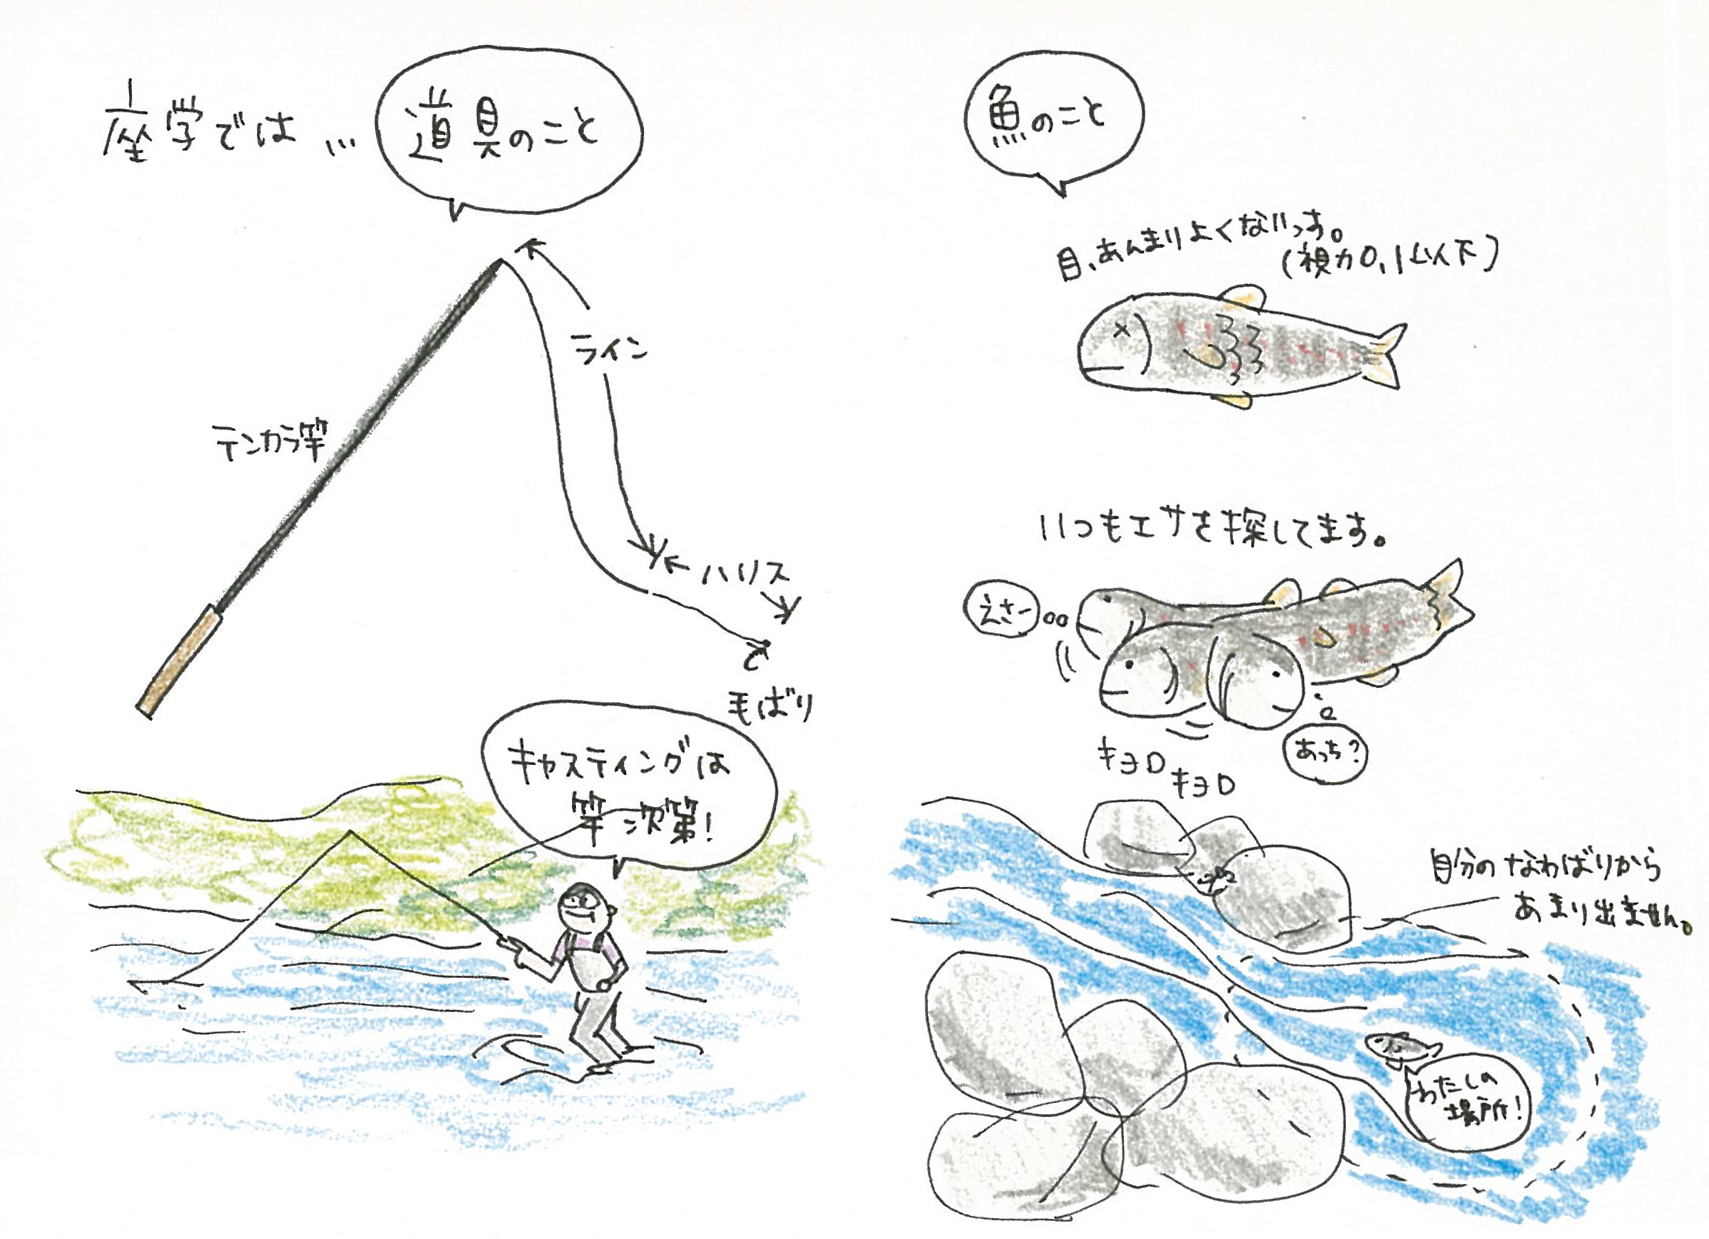 座学では…
道具のこと
ライン
テンカラ竿
ハリス
毛ばり
キャスティングは
竿次第!
魚のこと
目、あんまりよくないっす。
(視力0.1以下)
いつもエサを探してます。
えさー
あっち?
キョロ
キョロ
自分のなわばりから
あまり出ません。
わたしの
場所!